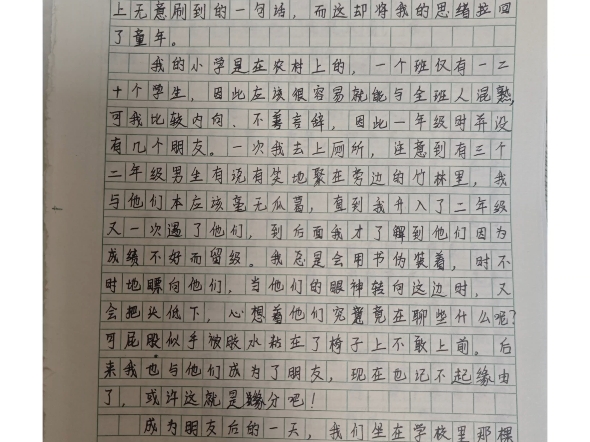 上无意刷到的一句话，而这却将我的思绪拉回
了童年。
我的小学是在农村上的，一个班仅有一二
十个学生，因此应该很容易就能与全班人混熟，
可我比较内向、不善言辞，因此一年级时并没
有几个朋友。一次我去上厕所，注意到有三个
二年级男生有说有笑地聚在旁边的竹林里，我
与他们本应该毫无瓜葛，直到我升入了二年级
又一次遇了他们，到后面我才了解到他们因为
成绩不好而留级。我总是会用书伪装着，时不
时地瞟向他们，当他们的眼神转向这边时，又
会把头低下，心想着他们究竟竟在聊些什么呢？
可屁股似乎被胶水粘在了椅子上不敢上前。后
来我也与他们成为了朋友，现在也记不起缘由
了，或许这就是缘分吧！
成为朋友后的一天，我们坐在学校里那棵